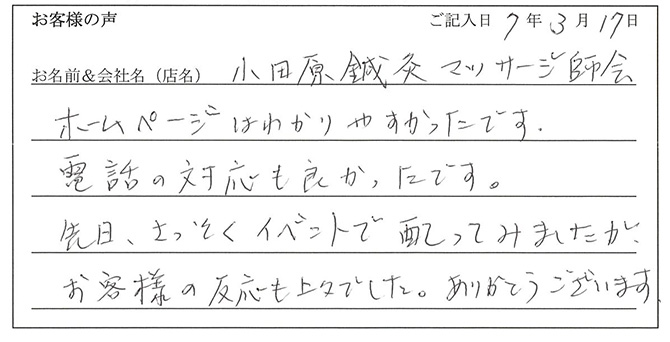 お客様の声 ご記入日 7年3月17日
お名前&会社名（店名） 小田原鍼灸マッサージ師会
ホームページはわかりやすかったです.
電話の対応も良かったです。
先日、さっそくイベントで配ってみましたが、
お客様の反応も上々でした。ありがとうございます.